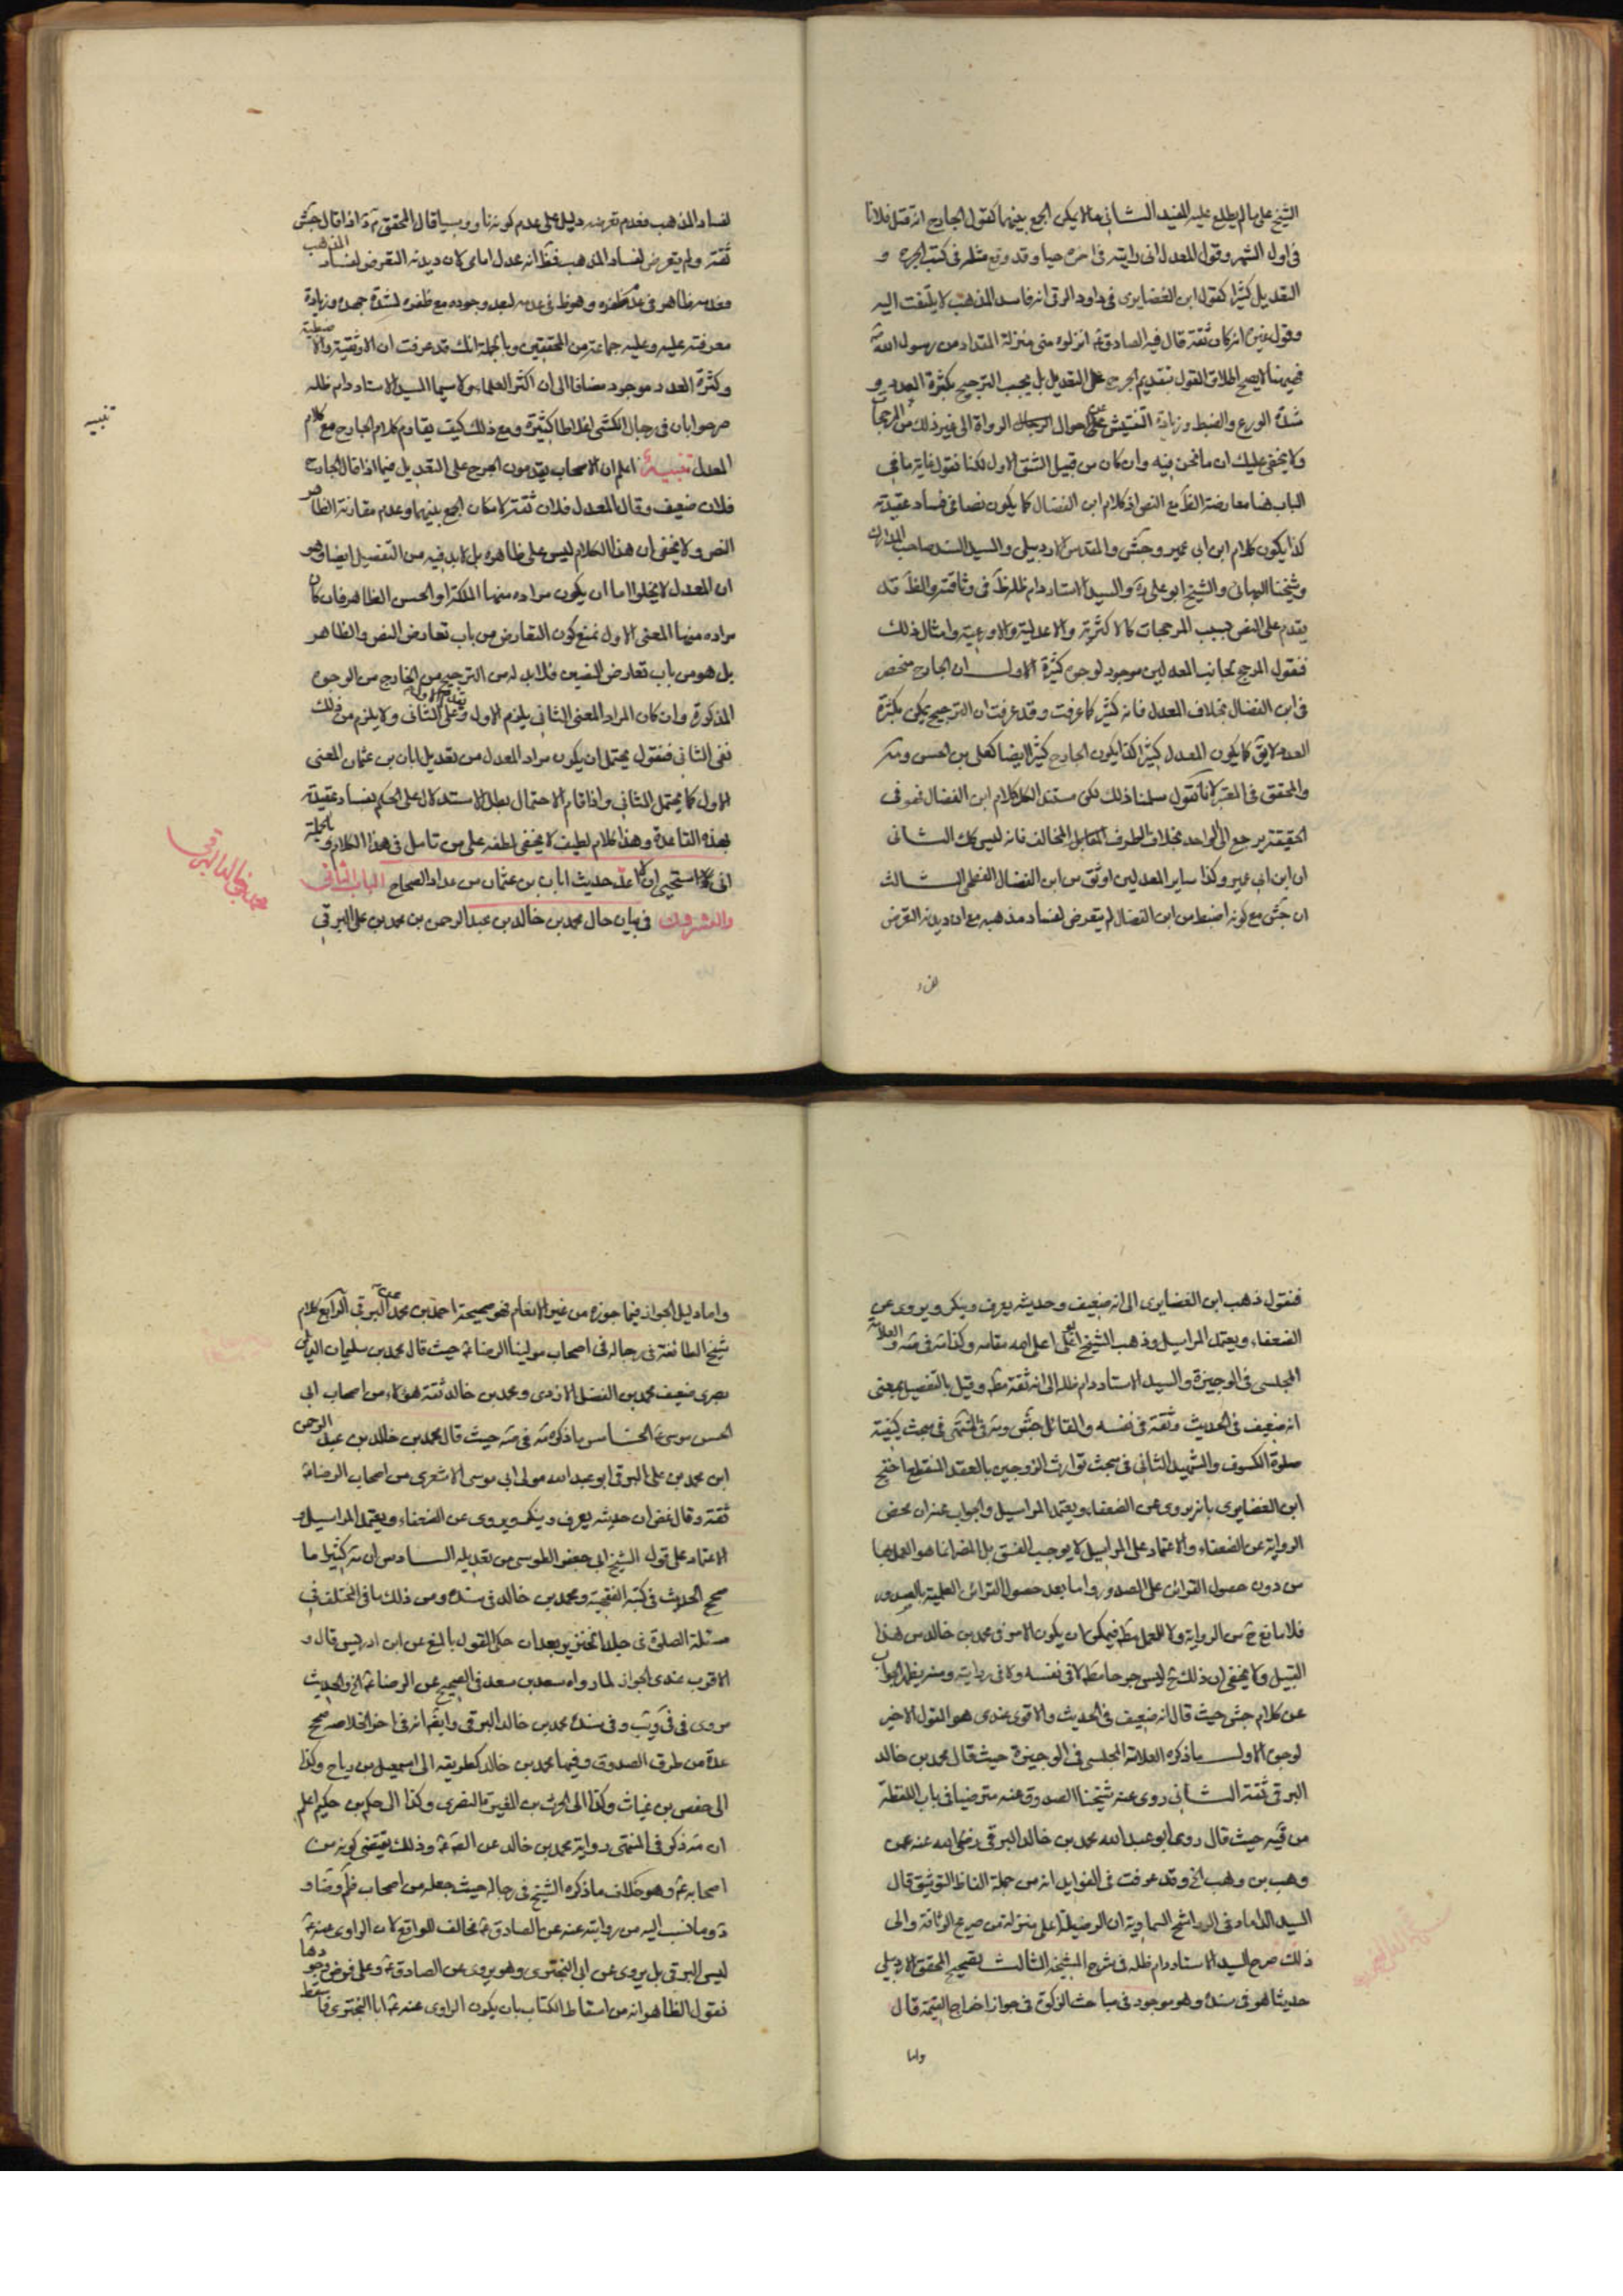 الشيخ على ما لم يطلع عليه المفيد الثاني ما لا يمكن الجمع بينهما كقول الجارح انه قتل فلانا
في اول الشهر وقول المعدل اني رايته في اخره حيا وقد وقع مثله في كتب الجرح و
التعديل كثيرا كقول ابن الغضايري في داود الرقي انه فاسد المذهب لا يلتفت اليه
وقول غيره انه كان ثقة قال فيه الصادق ع انزلوه مني منزلة المقداد من رسول الله ص
فههنا لا يصح اطلاق القول بتقديم الجرح على التعديل بل يجب الترجيح بكثرة العدد و
شدة الورع والضبط وزيادة التفتيش عن احوال الرواة الى غير ذلك من المرجحات
ولا يخفى عليك ان ما نحن فيه وان كان من قبيل الشق الاول لكنا نقول غاية ما في
الباب هنا معارضة الظ مع النص اذ كلام ابن الفضال كما يكون نصا في فساد عقيدته
كذا يكون كلام ابن ابي عمير وجش والمقدس الاردبيلي والسيد السند صاحب المدارك
وشيخنا البهائي والشيخ ابو علي ره والسيد الاستاد دام ظله ظ في وثاقته والظ قد
يقدم على النص بسبب المرجحات كالاكثرية والاعدلية والاورعية وامثال ذلك
فنقول المرجح لجانب المعدلين موجود لوجوه كثيرة الاول ان الجارح منحصر
في ابن الفضال بخلاف المعدل فانه كثير كما عرفت وقد عرفت ان الترجيح يمكن بكثرة
العدد لا يق كما يكون المعدل كثيرا كذا يكون الجارح كثيرا ايضا كعلي بن الحسن ومه
والمحقق في المعتبر لانا نقول سلمنا ذلك لكن مستند الكل كلام ابن الفضال فهو في
الحقيقة يرجع الى الواحد بخلاف الطرف المقابل المخالف فانه ليس كك الثاني
ان ابن ابي عمير وكذا ساير المعدلين اوثق من ابن الفضال الفطحي الثالث
ان جش مع كونه اضبط من ابن الفضال لم يتعرض لفساد مذهبه مع ان ديدنه التعرض
لفساد
لفساد المذهب فعدم تعرضه دليل على عدم كونه ناووسيا قال المحقق م د اذا قال جش
ثقة ولم يتعرض لفساد المذهب فظ انه عدل امامي لان ديدنه التعرض لفساد المذهب
فعدمه ظاهر في عدم ظفره وهو ظ في عدمه لبعد وجوده مع ظفره لشدة جهده وزيادة
معرفته عليه وعليه جماعة من المحققين وبالجملة انك قد عرفت ان الاوثقية والاضبطية
وكثرة العدد موجود مضافا الى ان اكثر العلماء ولا سيما السيد الاستاد دام ظله
صرحوا بان في رجال الكشي اغلاطا كثيرة ومع ذلك كيف يقاوم كلام الجارح مع كلام
المعدل تنبيه اعلم ان الاصحاب يقدمون الجرح على التعديل فيما اذا قال الجارح
فلان ضعيف وقال المعدل فلان ثقة لامكان الجمع بينهما وعدم مقاومة الظاهر
النص ولا يخفى ان هذا الكلام ليس على ظاهره بل لا بد فيه من التفصيل ايضا وهو
ان المعدل لا يخلو اما ان يكون مراده منهما الملكة او الحسن الظاهر فان كان
مراده منهما المعنى الاول نمنع كون التعارض من باب تعارض النص والظاهر
بل هو من باب تعارض النصين فلا بد له من الترجيح من الخارج من الوجوه
المذكورة وان كان المراد المعنى الثاني يلزم تقديم الاول على الثاني ولا يلزم من ذلك
نفي الثاني فنقول يحتمل ان يكون مراد المعدل من تعديل ابان بن عثمان المعنى
الاول كما يحتمل الثاني واذا قام الاحتمال بطل الاستدلال على الحكم بفساد عقيدته
بهذه القاعدة وهذا كلام لطيف لا يخفى لطفه على من تامل في هذا الكلام وبالجملة
اني لا استحيي ان اعد حديث ابان بن عثمان من عداد الصحاح الباب الثاني
والعشرون في بيان حال محمد بن خالد بن عبد الرحمن بن محمد بن علي البرقي
تنبيه
محمد بن خالد البرقي
فنقول ذهب ابن الغضايري الى انه ضعيف وحديثه يعرف وينكر ويروي عن
الضعفاء ويعتمد المراسيل وذهب الشيخ ابو علي اعلى الله مقامه وكذا مه في صه والعلامة
المجلسي في الوجيزة والسيد الاستاد دام ظله الى انه ثقة مط وقيل بالتفصيل بمعنى
انه ضعيف في الحديث وثقة في نفسه والقائل جش ومه في المنتهى في بحث كيفية
صلوة الكسوف والشهيد الثاني في مبحث توارث الزوجين بالعقد المنقطع احتج
ابن الغضايري بانه يروي عن الضعفاء ويعتمد المراسيل والجواب عنه ان محض
الرواية عن الضعفاء والاعتماد على المراسيل لا يوجب الفسق بل المضر انما هو العمل بها
من دون حصول القرائن على الصدور واما بعد حصول القرائن العلمية بالصدور
فلا مانع ح من الرواية ولا للعمل مط فيمكن ان يكون الامر في محمد بن خالد من هذا
القبيل ولا يخفى ان ذلك ح ليس جرحا مط لا في نفسه ولا في روايته ومنه يظهر الجواب
عن كلام جش حيث قال انه ضعيف في الحديث والاقوى عندي هو القول الاخير
لوجوه الاول ما ذكره العلامة المجلسي في الوجيزة حيث قال محمد بن خالد
البرقي ثقة الثاني روى عنه شيخنا الصدوق عنه مترضيا في باب اللقطة
من فيه حيث قال روى ابو عبد الله محمد بن خالد البرقي رضي الله عنه عن
وهب بن وهب الخ وقد عرفت في الفوايد انه من جملة الفاظ التوثيق قال
السيد الداماد في الرواشح السماوية ان الرضيلة اعلى منزلة من صريح الوثاقة والى
ذلك صرح السيد الاستاد دام ظله في شرح الشيخه الثالث تصحيح المحقق الاردبيلي
حديثا هو في سنده وهو موجود في مباحث الزكوة في جواز اخراج القيمة قال
واما
واما دليل الجواز فيما جوزه من غير الانعام فهو صحيحة احمد بن محمد عن البرقي الرابع كلام
شيخ الطائفة في رجاله في اصحاب مولينا الرضا ع حيث قال محمد بن سليمان الديلمي
بصري ضعيف محمد بن الفضل الازدي ومحمد بن خالد ثقة هؤلاء من اصحاب ابي
الحسن موسى ع الخامس ما ذكره مه في صه حيث قال محمد بن خالد بن عبد الرحمن
ابن محمد بن علي البرقي ابو عبد الله مولى ابي موسى الاشعري من اصحاب الرضا ع
ثقة وقال غض ان حديثه يعرف وينكر ويروي عن الضعفاء ويعتمد المراسيل و
الاعتماد على قول الشيخ ابي جعفر الطوسي من تعديله السادس ان مه كثيرا ما
صحح الحديث في كتبه الفقهية ومحمد بن خالد في سنده ومن ذلك ما في المختلف في
مسئلة الصلوة في جلد الخنزير بعد ان حكى القول بالمنع عن ابن ادريس قال و
الاقرب عندي الجواز لما رواه سعد بن سعد في الصحيح عن الرضا ع الخ والحديث
مروي في في ويب وفي سنده محمد بن خالد البرقي وايضا انه في اخر الخلاصه صحح
عدة من طرق الصدوق وفيها محمد بن خالد كطريقه الى اسمعيل بن رباح وكذا
الى حفص بن غياث وكذا الى الحرث بن المغيرة النصري وكذا الى حكم بن حكيم اعلم
ان مه ذكر في المنتهى رواية محمد بن خالد عن الصادق ع وذلك يقتضي كونه من
اصحابه ع وهو خلاف ما ذكره الشيخ في رجاله حيث جعله من اصحاب ظم وضا و
د وما نسب اليه من روايته عنه عن الصادق ع مخالف للواقع لان الراوي عنه ع
ليس البرقي بل يروي عن ابي البختري وهو يروي عن الصادق ع وعلى فرض وجودها
فنقول الظاهر انه من اسقاط الكتاب بان يكون الراوي عنه ع ابا البختري فاسقط